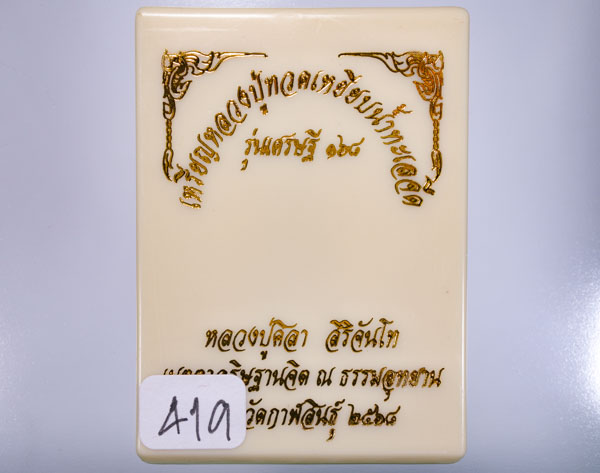 เหรียญหลวงปู่ทวดเหยียบน้ำทะเลจืด
รุ่นเศรษฐี ๑๖๘
หลวงปู่ศิลา สิริจันโท
เมตตาอธิษฐานจิต ณ ธรรมอุทยาน
วัดกาฬสินธุ์ ๒๕๖๘
419